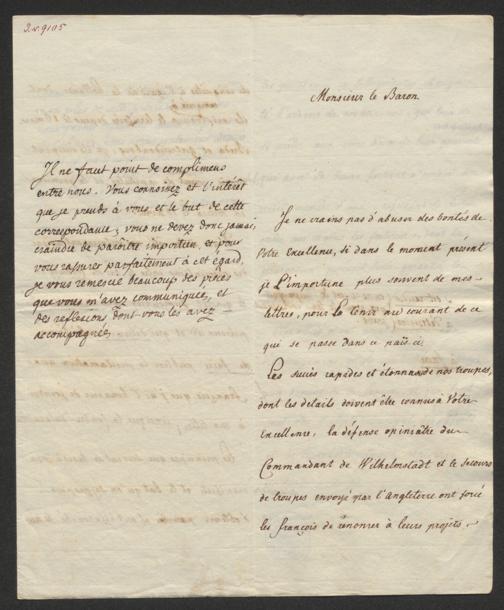 Monsieur le Baron.
Il ne faut point de complimens
entre nous. Vous connoissez et l'intérêt
que je prends à vous et le but de cette
correspondance; vous ne devez donc jamais
craindre de paroître importun, et pour
vous rassurer parfaitement à cet égard,
je vous remercie beaucoup des pièces
que vous m'avez communiqué, et
des reflexions dont vous les avez
accompagnées
Je ne crains pas d'abuser des bontés de
Votre Excellence, si dans le moment présent
je L'importune plus souvent de mes
lettres, pour La tenir au courant de ce
qui se passe dans ce païs ci.
Les succès rapides et étonnans de nos troupes,
dont les details doivent être connus à Votre
Excellence, la défense opiniâtre du
Commandant de Wilhelmstadt et le secours
de troupes envoyé par l'Angleterre ont forcé
les françois de renoncer à leurs projets